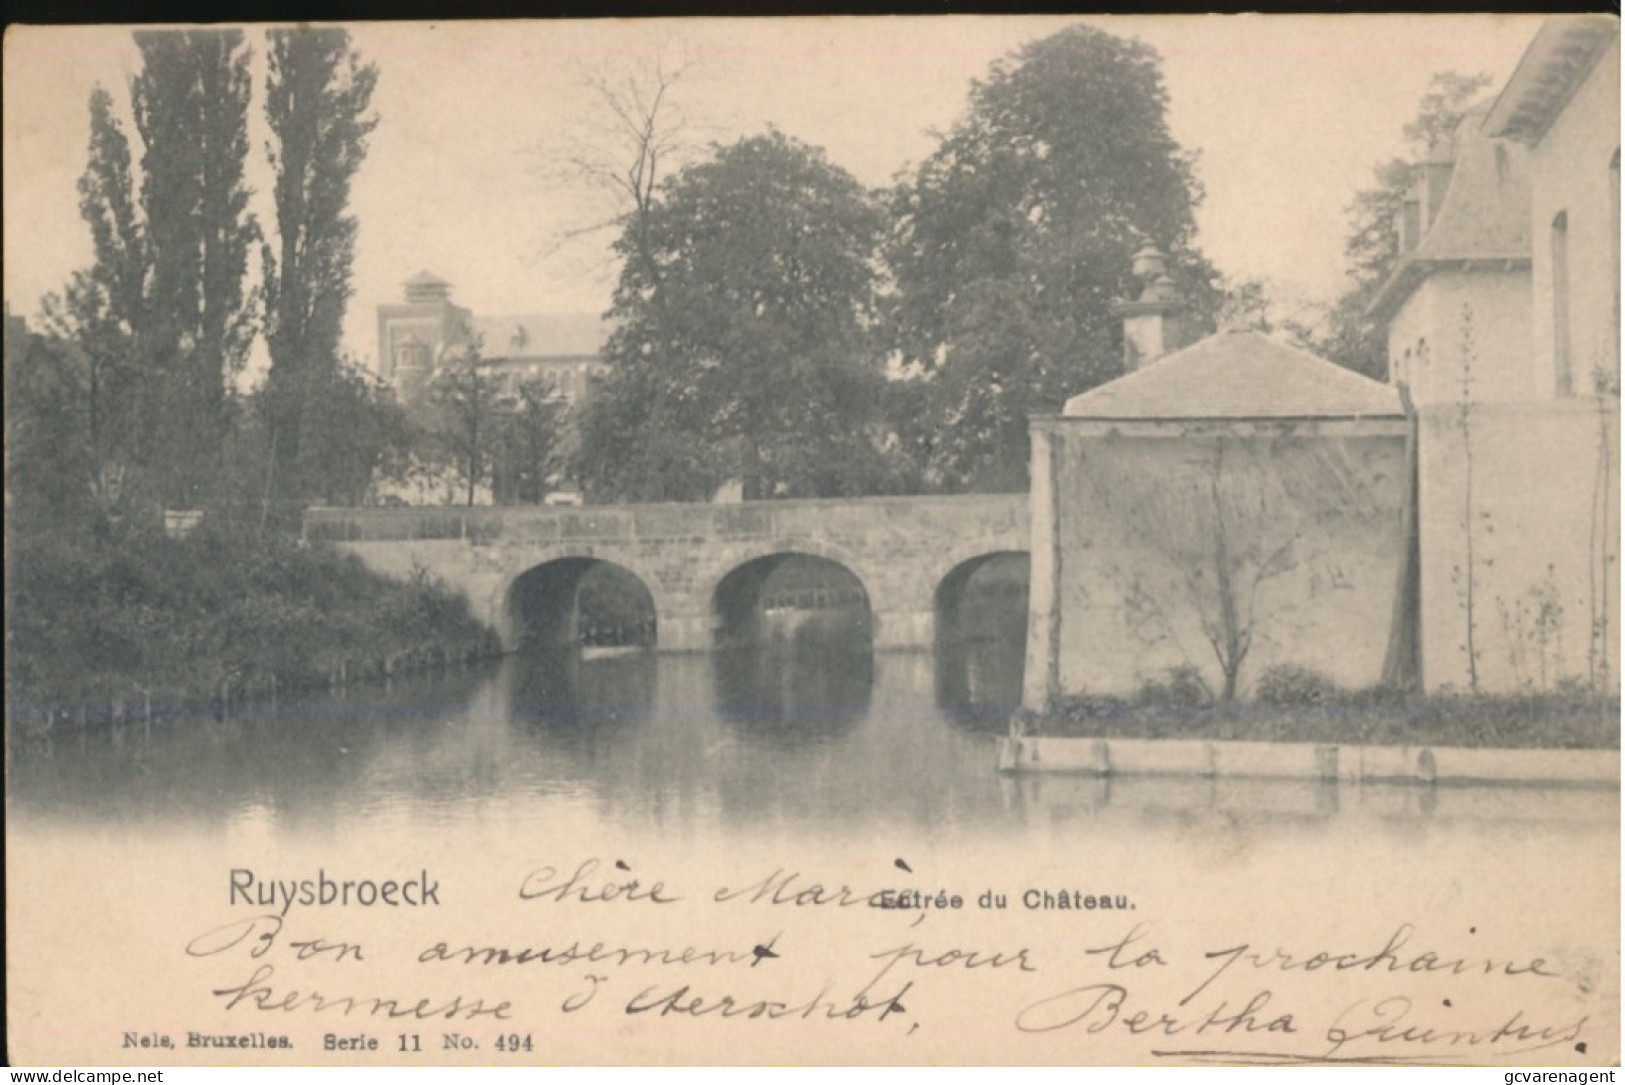 Ruysbroeck
Chère Marie,
Entrée du Château.
Bon amusement pour la prochaine
kermesse d'Aerschot,
Bertha Quintus.
Nels, Bruxelles. Serie 11 No. 494
www.delcampe.net
gcvarenagent